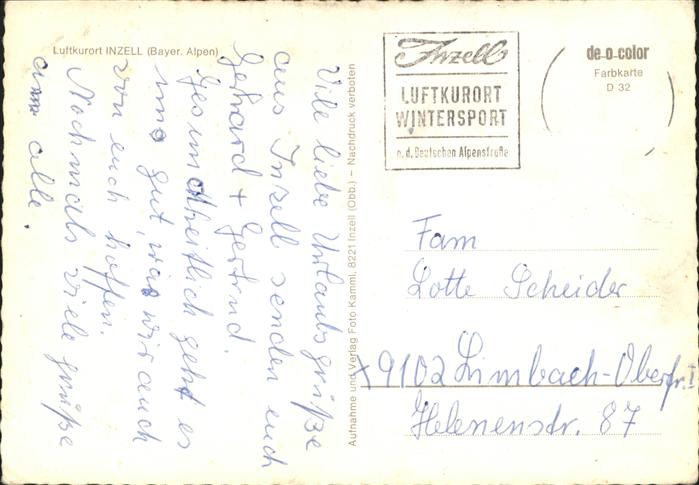 Luftkurort INZELL (Bayer. Alpen)
Viele liebe Urlaubsgrüße
aus Inzell senden euch
Gerhard + Gertrud.
Gesundheitlich geht es
uns gut, was wir auch
von euch hoffen.
Nochmals viele grüße
an alle.
Aufnahme und Verlag Foto Kamml, 8221 Inzell (Obb.) — Nachdruck verboten
Inzell
LUFTKURORT
WINTERSPORT
a. d. Deutschen Alpenstraße
de-o-color
Farbkarte
D 32
Fam
Lotte Scheider
x 9102 Limbach-Oberfr. I
Helenenstr. 87